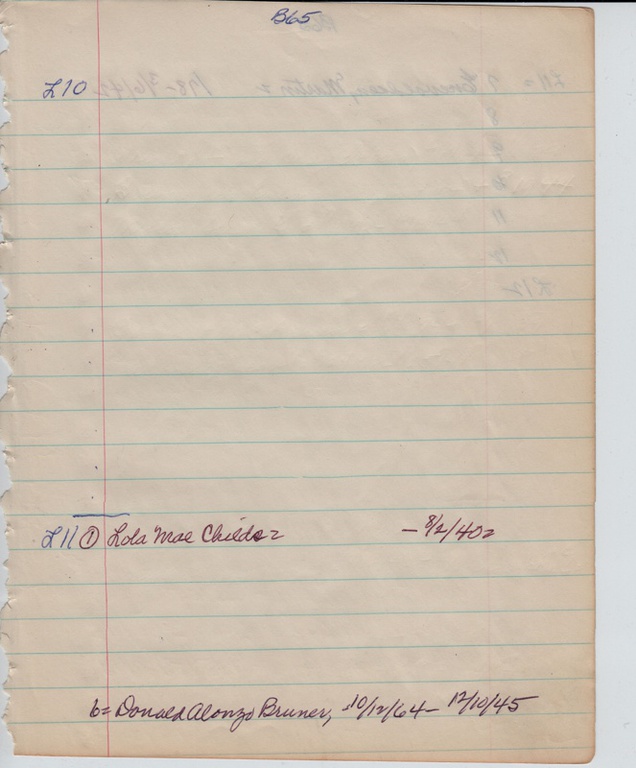 B65
L10
L11 ① Lola Mae Childs = - 8/2/40 =
6 = Donald Alonzo Bruner, 10/12/64 - 12/10/45